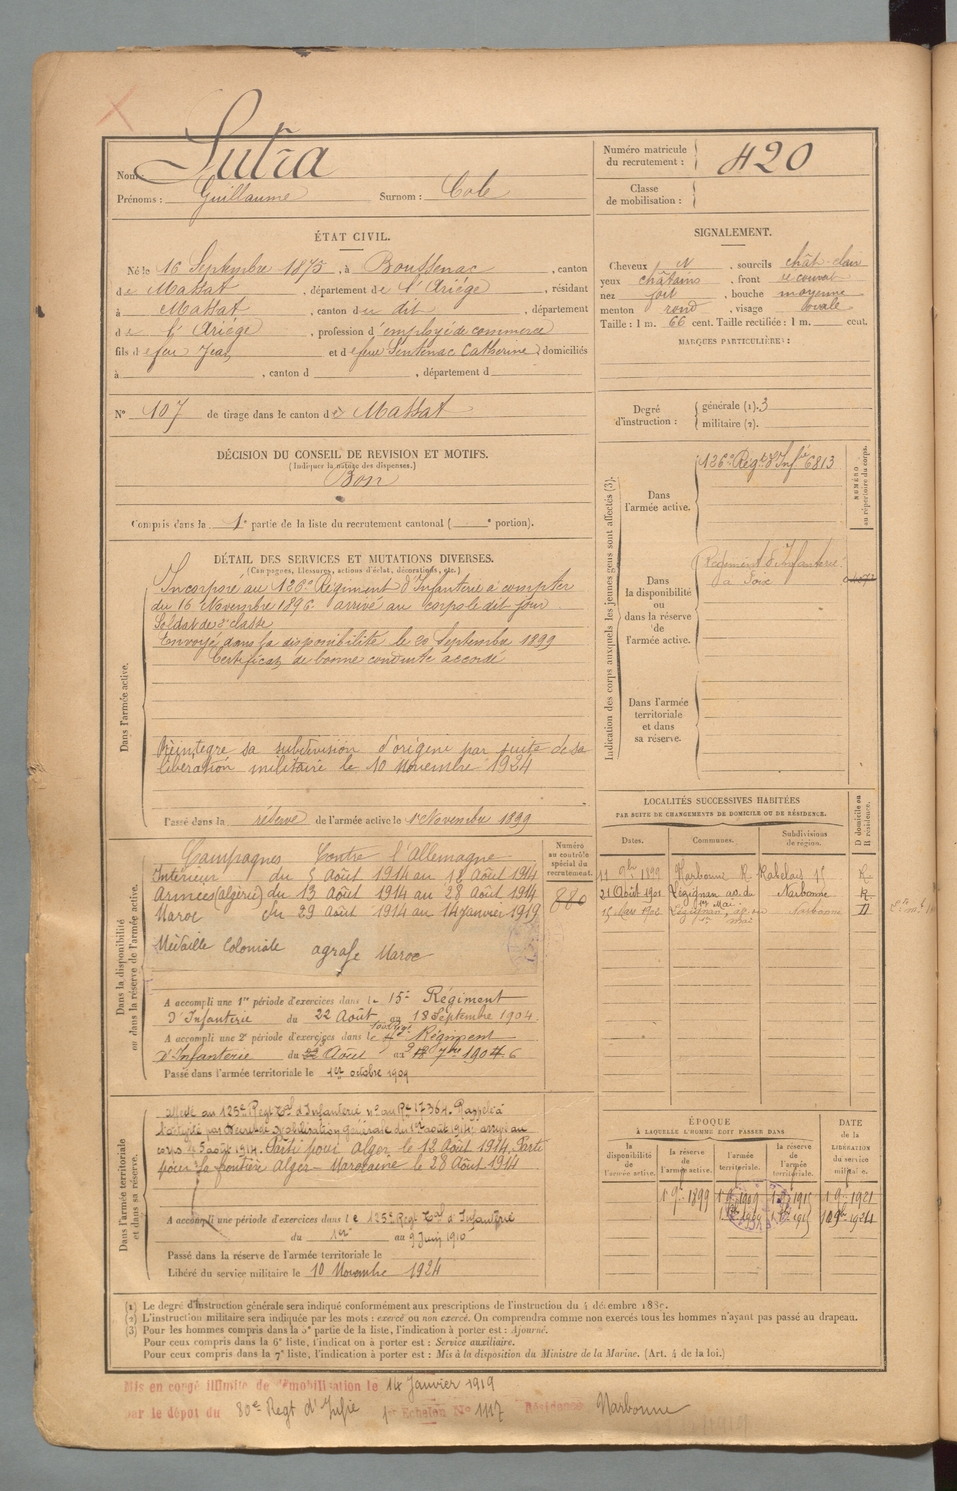 Nom : Sutra
Prénoms : Guillaume Surnom : Cole
Numéro matricule du recrutement : 420
Classe de mobilisation :
ÉTAT CIVIL.
Né le 16 Septembre 1875, à Boussenac, canton
de Massat, département de l'Ariége, résidant
à Massat, canton du dit, département
de l'Ariége, profession d'employé de commerce
fils de feu Jean et de feue Sentenac Catherine, domiciliés
à , canton d , département d
N° 107 de tirage dans le canton de Massat
SIGNALEMENT.
Cheveux N, sourcils chât-clair
yeux châtains, front
nez fort, bouche moyenne
menton rond, visage ovale
Taille : 1 m. 66 cent. Taille rectifiée : 1 m. cent.
MARQUES PARTICULIÈRES :
Degré d'instruction : générale (1). 3
militaire (2).
DÉCISION DU CONSEIL DE REVISION ET MOTIFS.
(Indiquer la nature des dispenses.)
Bon
Compris dans la 1e partie de la liste du recrutement cantonal ( e portion).
DÉTAIL DES SERVICES ET MUTATIONS DIVERSES.
(Campagnes, blessures, actions d'éclat, décorations, etc.)
Dans l'armée active.
Incorporé au 126e Régiment d'Infanterie à compter
du 16 Novembre 1896. arrivé au corps le dit jour
Soldat de 2e classe
Envoyé dans la disponibilité le 20 Septembre 1899
Certificat de bonne conduite accordé
Réintegre sa subdivision d'origine par suite de sa
libération militaire le 10 Novembre 1924
Passé dans la réserve de l'armée active le 1er Novembre 1899
Indication des corps auxquels les jeunes gens sont affectés (3).
Dans l'armée active.
126e Régt d'Infie 6813
NUMÉRO au répertoire du corps.
Dans la disponibilité ou dans la réserve de l'armée active.
Régiment d'Infanterie
de Foix
Dans l'armée territoriale et dans sa réserve.
Dans la disponibilité ou dans la réserve de l'armée active.
Campagnes Contre l'Allemagne
Intérieur du 5 Août 1914 au 12 Août 1914
Armées (Algérie) du 13 Août 1914 au 28 Août 1914
Maroc du 29 Août 1914 au 14 Janvier 1919
Médaille Coloniale agrafe Maroc
Numéro au contrôle spécial du recrutement.
880
A accompli une 1re période d'exercices dans le 15e Régiment
d'Infanterie du 22 Août au 18 Septembre 1904.
A accompli une 2e période d'exercices dans le Régiment
d'Infanterie du Août au 7bre 1906
Passé dans l'armée territoriale le 1er octobre 1909
LOCALITÉS SUCCESSIVES HABITÉES
PAR SUITE DE CHANGEMENTS DE DOMICILE OU DE RÉSIDENCE.
Dates. Communes. Subdivisions de région. D domicile ou R résidence.
11 9bre 1899 Narbonne R. Rabelais 15 R
21 Août 1901 Lézignan av. du 1er Mai Narbonne R
15 Mars 1902 Lézignan, av. du 1er mai Narbonne D
Dans l'armée territoriale et dans sa réserve.
Affecté au 125e Régt Tal d'Infanterie n° au Re 17364. Rappelé à
l'activité par Décret de Mobilisation Générale du 1er août 1914. arrivé au
corps le 5 août 1914. Parti pour Alger le 12 Août 1914. Parti
pour la frontière Algér-Marocaine le 28 Août 1914
A accompli une période d'exercices dans le 125e Régt Tal d'Infanterie
du 1er au 9 Juin 1910
Passé dans la réserve de l'armée territoriale le
Libéré du service militaire le 10 Novembre 1924
ÉPOQUE
À LAQUELLE L'HOMME DOIT PASSER DANS
la disponibilité de l'armée active. la réserve de l'armée active. l'armée territoriale. la réserve de l'armée territoriale. DATE de la LIBÉRATION du service militaire.
1 9bre 1899 1909 1915 1921
1909 1915 10 9bre 1924
(1) Le degré d'instruction générale sera indiqué conformément aux prescriptions de l'instruction du 4 décembre 1889.
(2) L'instruction militaire sera indiquée par les mots : exercé ou non exercé. On comprendra comme non exercés tous les hommes n'ayant pas passé au drapeau.
(3) Pour les hommes compris dans la 5e partie de la liste, l'indication à porter est : Ajourné.
Pour ceux compris dans la 6e liste, l'indication à porter est : Service auxiliaire.
Pour ceux compris dans la 7e liste, l'indication à porter est : Mis à la disposition du Ministre de la Marine. (Art. 4 de la loi.)
Mis en congé illimité de démobilisation le 14 Janvier 1919
par le dépôt du 80e Regt d'Infie 1er Echelon N° 1117 Résidence Narbonne